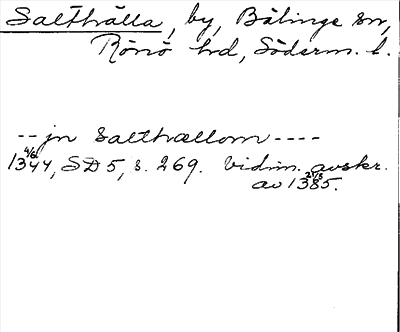 Salthälla, by, Bälinge sn,
Rönö hrd, Söderm. l.
-- jn Salthællom ----
1344, SD 5, s. 269. Vidim. avskr.
av 1385.